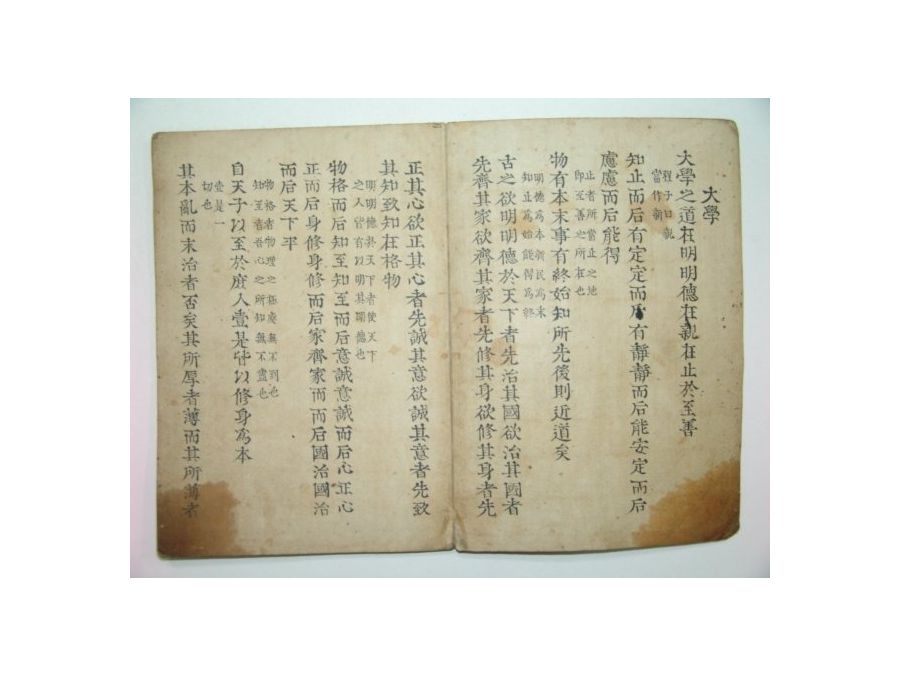 大學
大學之道在明明德在親在止於至善
程子曰親
當作新
知止而后有定定而后有靜靜而后能安定而后
慮慮而后能得
止者所當止之地
即至善之所在也
物有本末事有終始知所先後則近道矣
明德爲本新民爲末
知止爲始能得爲終
古之欲明明德於天下者先治其國欲治其國者
先齊其家欲齊其家者先修其身欲修其身者先
正其心欲正其心者先誠其意欲誠其意者先致
其知致知在格物
明明德於天下者使天下
之人皆有以明其明德也
物格而后知至知至而后意誠意誠而后心正心
正而后身修身修而后家齊家而而后國治國治
而后天下平
物格者物理之極處無不到也
知至者吾心之所知無不盡也
自天子以至於庶人壹是皆以修身爲本
壹是一
切也
其本亂而末治者否矣其所厚者薄而其所薄者